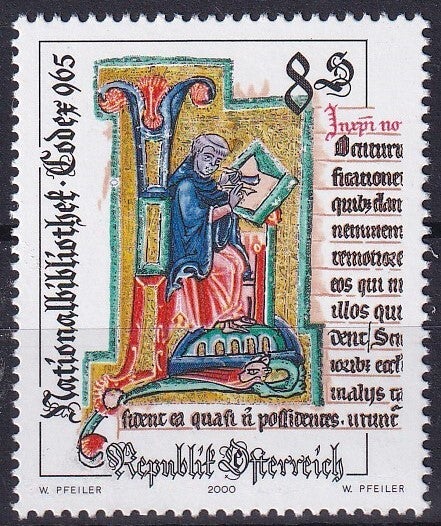 8 S
Nationalbibliothek · Codex 965
Inxpi no
Ocituru
ficatione
quib; dam
neminem
remotiore
eos qui m
illos qui
dent; Sent
iorib; eccl
malys ta
sident ea quasi n̄ possidentes. utunt̄
Republik Österreich
W. PFEILER 2000 W. PFEILER